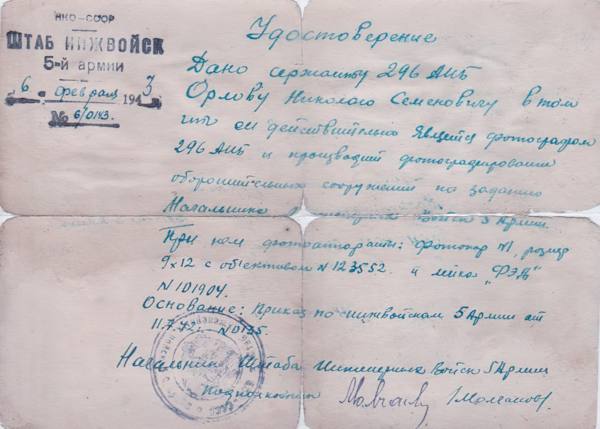 НКО-СССР
ШТАБ ИНЖВОЙСК
5-й армии
6 февраля 1943
№ 6/0143.
Удостоверение
Дано сержанту 296 АИБ
Орлову Николаю Семеновичу в том
что он действительно является фотографом
296 АИБ и производит фотографирование
оборонительных сооружений по заданию
Начальника Войск 5 Армии.
При нем фотоаппараты: Фотокор №1, розмер
9х12 с объективом N 123552. и лейка "ФЭД"
N 101904.
Основание: Приказ по инжвойскам 5 Армии от
Начальник Штаба Инженерных Войск 5 Армии
Подполковник